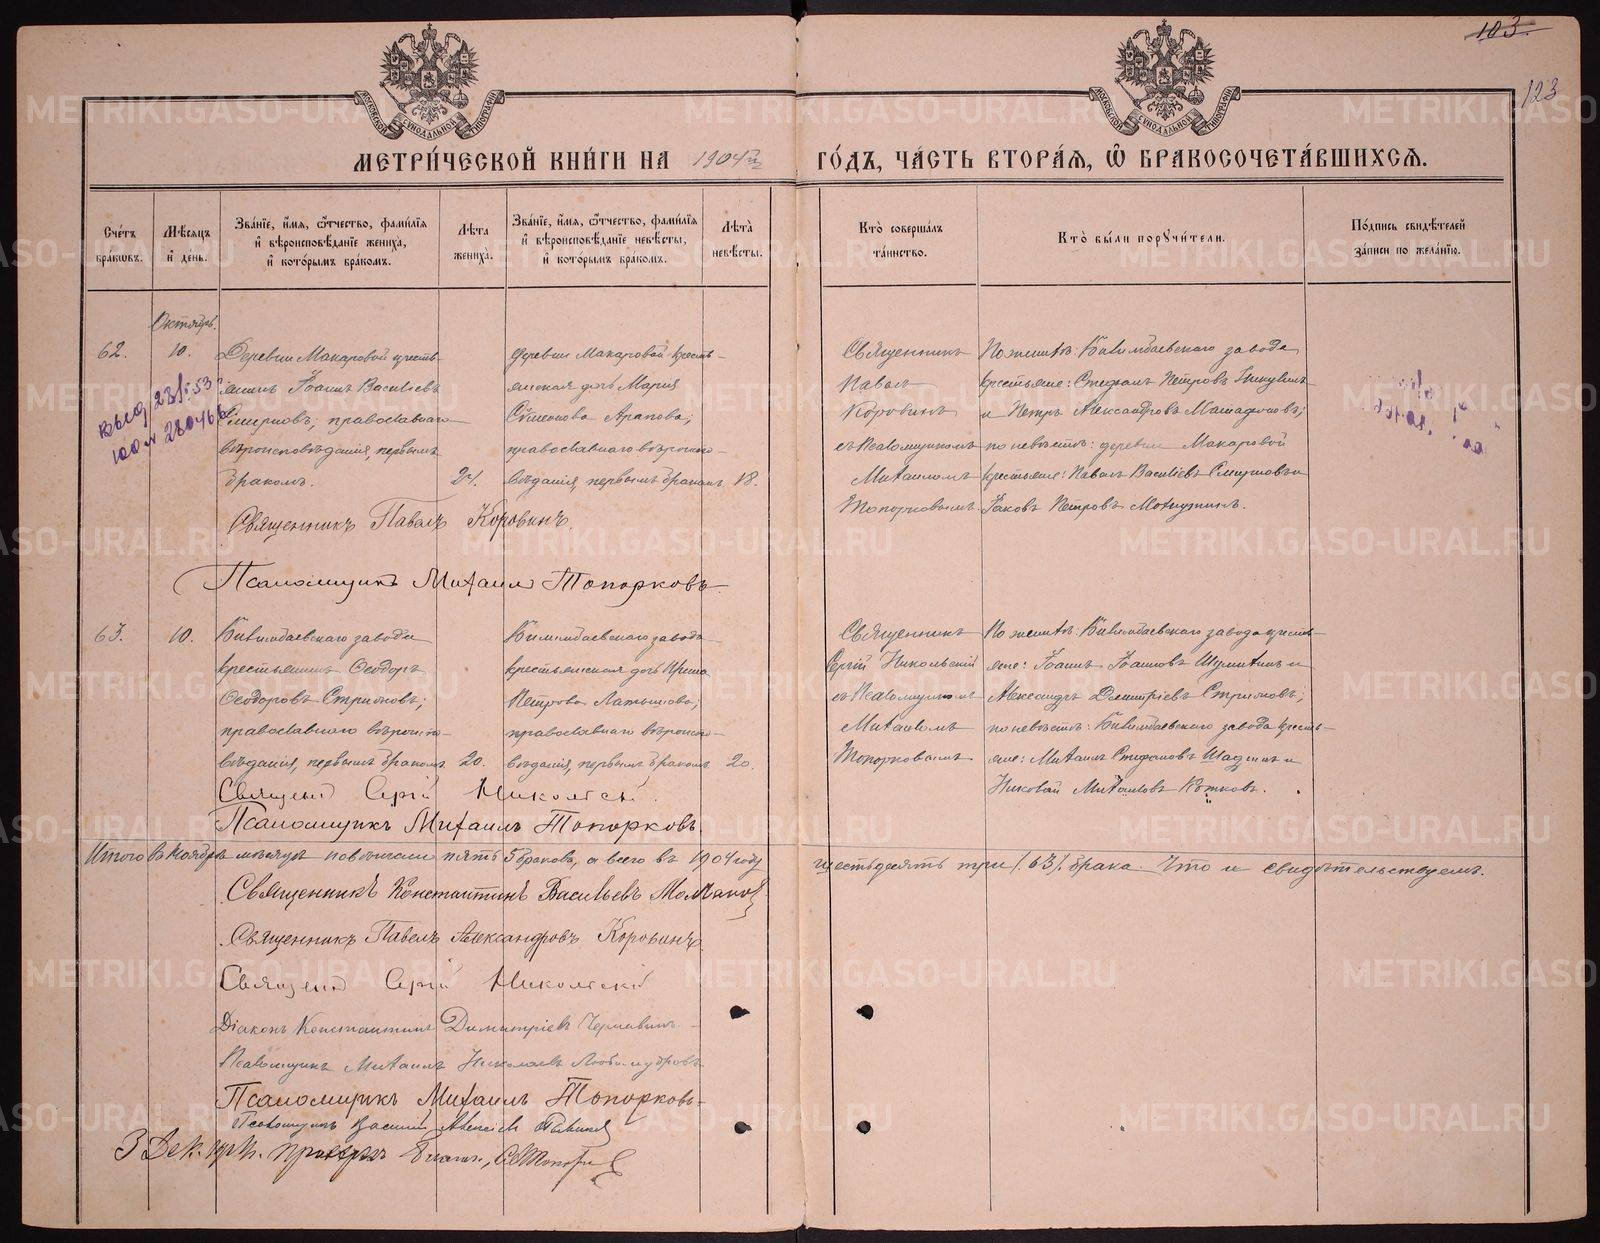 103
123
МЕТРИ́ЧЕСКОЙ КНИ́ГИ НА 1904й ГО́ДЪ, ЧА́СТЬ ВТОРА́Я, Ѿ БРАКОСОЧЕТА́ВШИХСЯ.
Сче́тъ бра́ковъ.
Мѣ́сяцъ и҆ де́нь.
Зва́нїе, и҆́мя, ѻ҆́тчество, фами́лїя и҆ вѣроисповѣ́данїе жениха̀, и҆ кото́рымъ бра́комъ.
Лѣ́та жениха̀.
Зва́нїе, и҆́мя, ѻ҆́тчество, фами́лїя и҆ вѣроисповѣ́данїе невѣ́сты, и҆ кото́рымъ бра́комъ.
Лѣ́та невѣ́сты.
Кто̀ соверша́лъ та́инство.
Кто̀ бы́ли поручи́тели.
По́дпись свидѣ́телей за́писи по жела́нїю.
Октябрь.
62.
10.
Деревни Макаровой кресть-
янинъ Іоаннъ Васильевъ
Смирновъ, православнаго
вѣроисповѣданія, первымъ
бракомъ.
24.
деревни Макаровой кресть-
янская дочь Марія
Симеонова Арапова,
православнаго вѣроиспо-
вѣданія, первымъ бракомъ
18.
Священникъ
Павелъ
Коровинъ
съ псаломщикомъ
Михаиломъ
Топорковымъ
По женихѣ: Билимбаевскаго завода
крестьяне: Стефанъ Петровъ
и Петръ Александровъ
по невѣстѣ: деревни Макаровой
крестьяне: Павелъ Васильевъ Смирновъ и
Іаковъ Петровъ
выд. 23/
Священникъ Павелъ Коровинъ.
Псаломщикъ Михаилъ Топорковъ.
63.
10.
Билимбаевскаго завода
крестьянинъ Ѳеодоръ
Ѳеодоровъ
православнаго вѣроиспо-
вѣданія, первымъ бракомъ
20.
Билимбаевскаго завода
крестьянская дочь Ирина
Петрова Латышова;
православнаго вѣроиспо-
вѣданія, первымъ бракомъ
20.
Священникъ
Сергій Никольскій
съ псаломщикомъ
Михаиломъ
Топорковымъ
По женихѣ: Билимбаевскаго завода кресть-
яне: Іоаннъ Іоанновъ и
Александръ Димитріевъ
по невѣстѣ: Билимбаевскаго завода кресть-
яне: Михаилъ Стефановъ и
Николай Михаиловъ
Священник Сергій Никольскій.
Псаломщикъ Михаилъ Топорковъ.
Итого в Ноябрѣ мѣсяцѣ повѣнчали пять 5 браковъ, а всего въ 1904 году шестьдесятъ три (63) брака. Что и свидѣтельствуемъ.
Священникъ Константинъ Васильевъ
Священникъ Павелъ Александровъ Коровинъ
Священник Сергій Никольскій
Діаконъ Константинъ Димитріевъ
Псаломщикъ Михаилъ Николаевъ Любомудровъ
Псаломщикъ Михаилъ Топорковъ
Псаломщикъ Василій
3 Дек.
METRIKI.GASO-URAL.RU